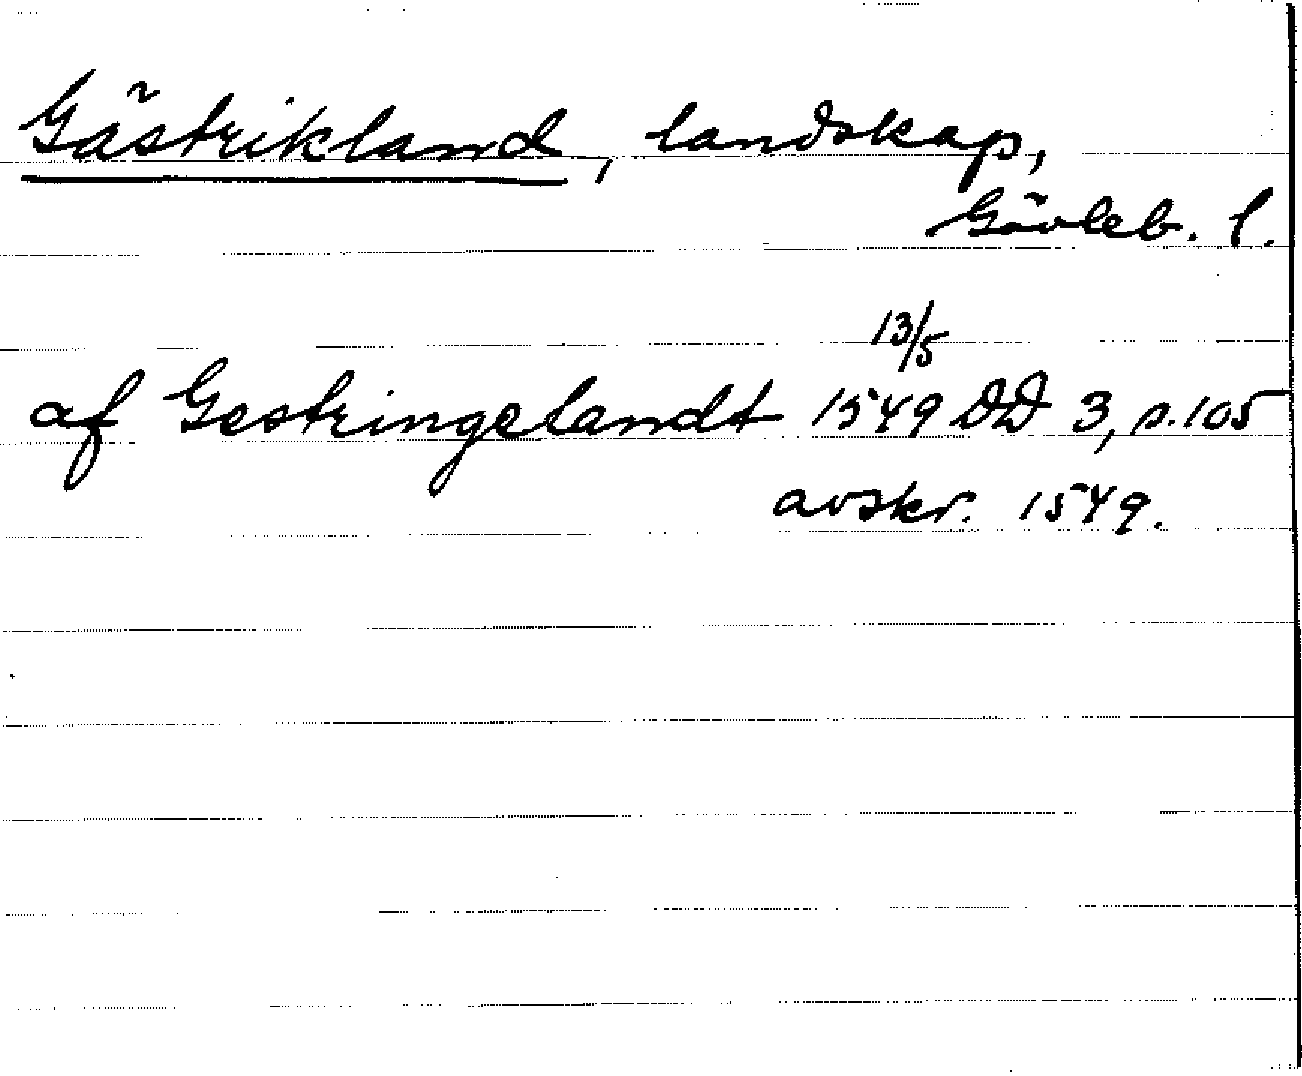 Gästrikland, landskap,
Gävleb. l.
13/5
af Gestringelandt 1549 DD 3, s. 105
avskr. 1549.